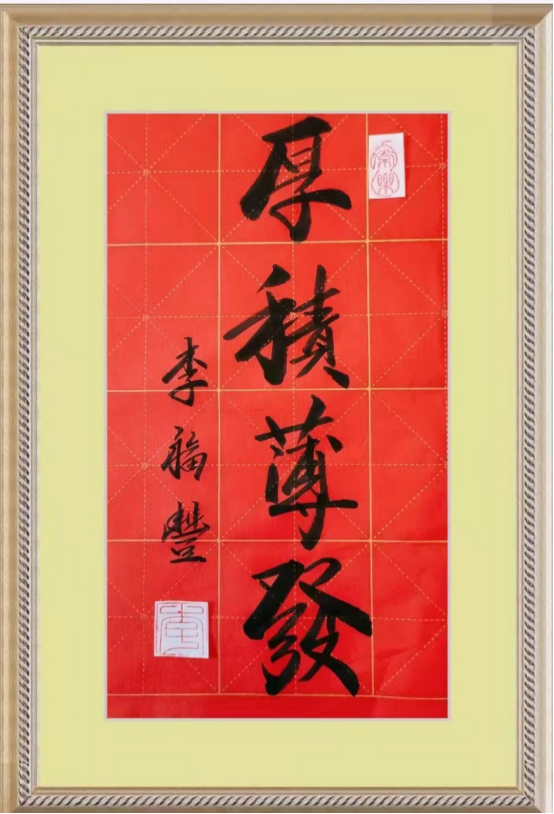 厚積薄發
李福豐